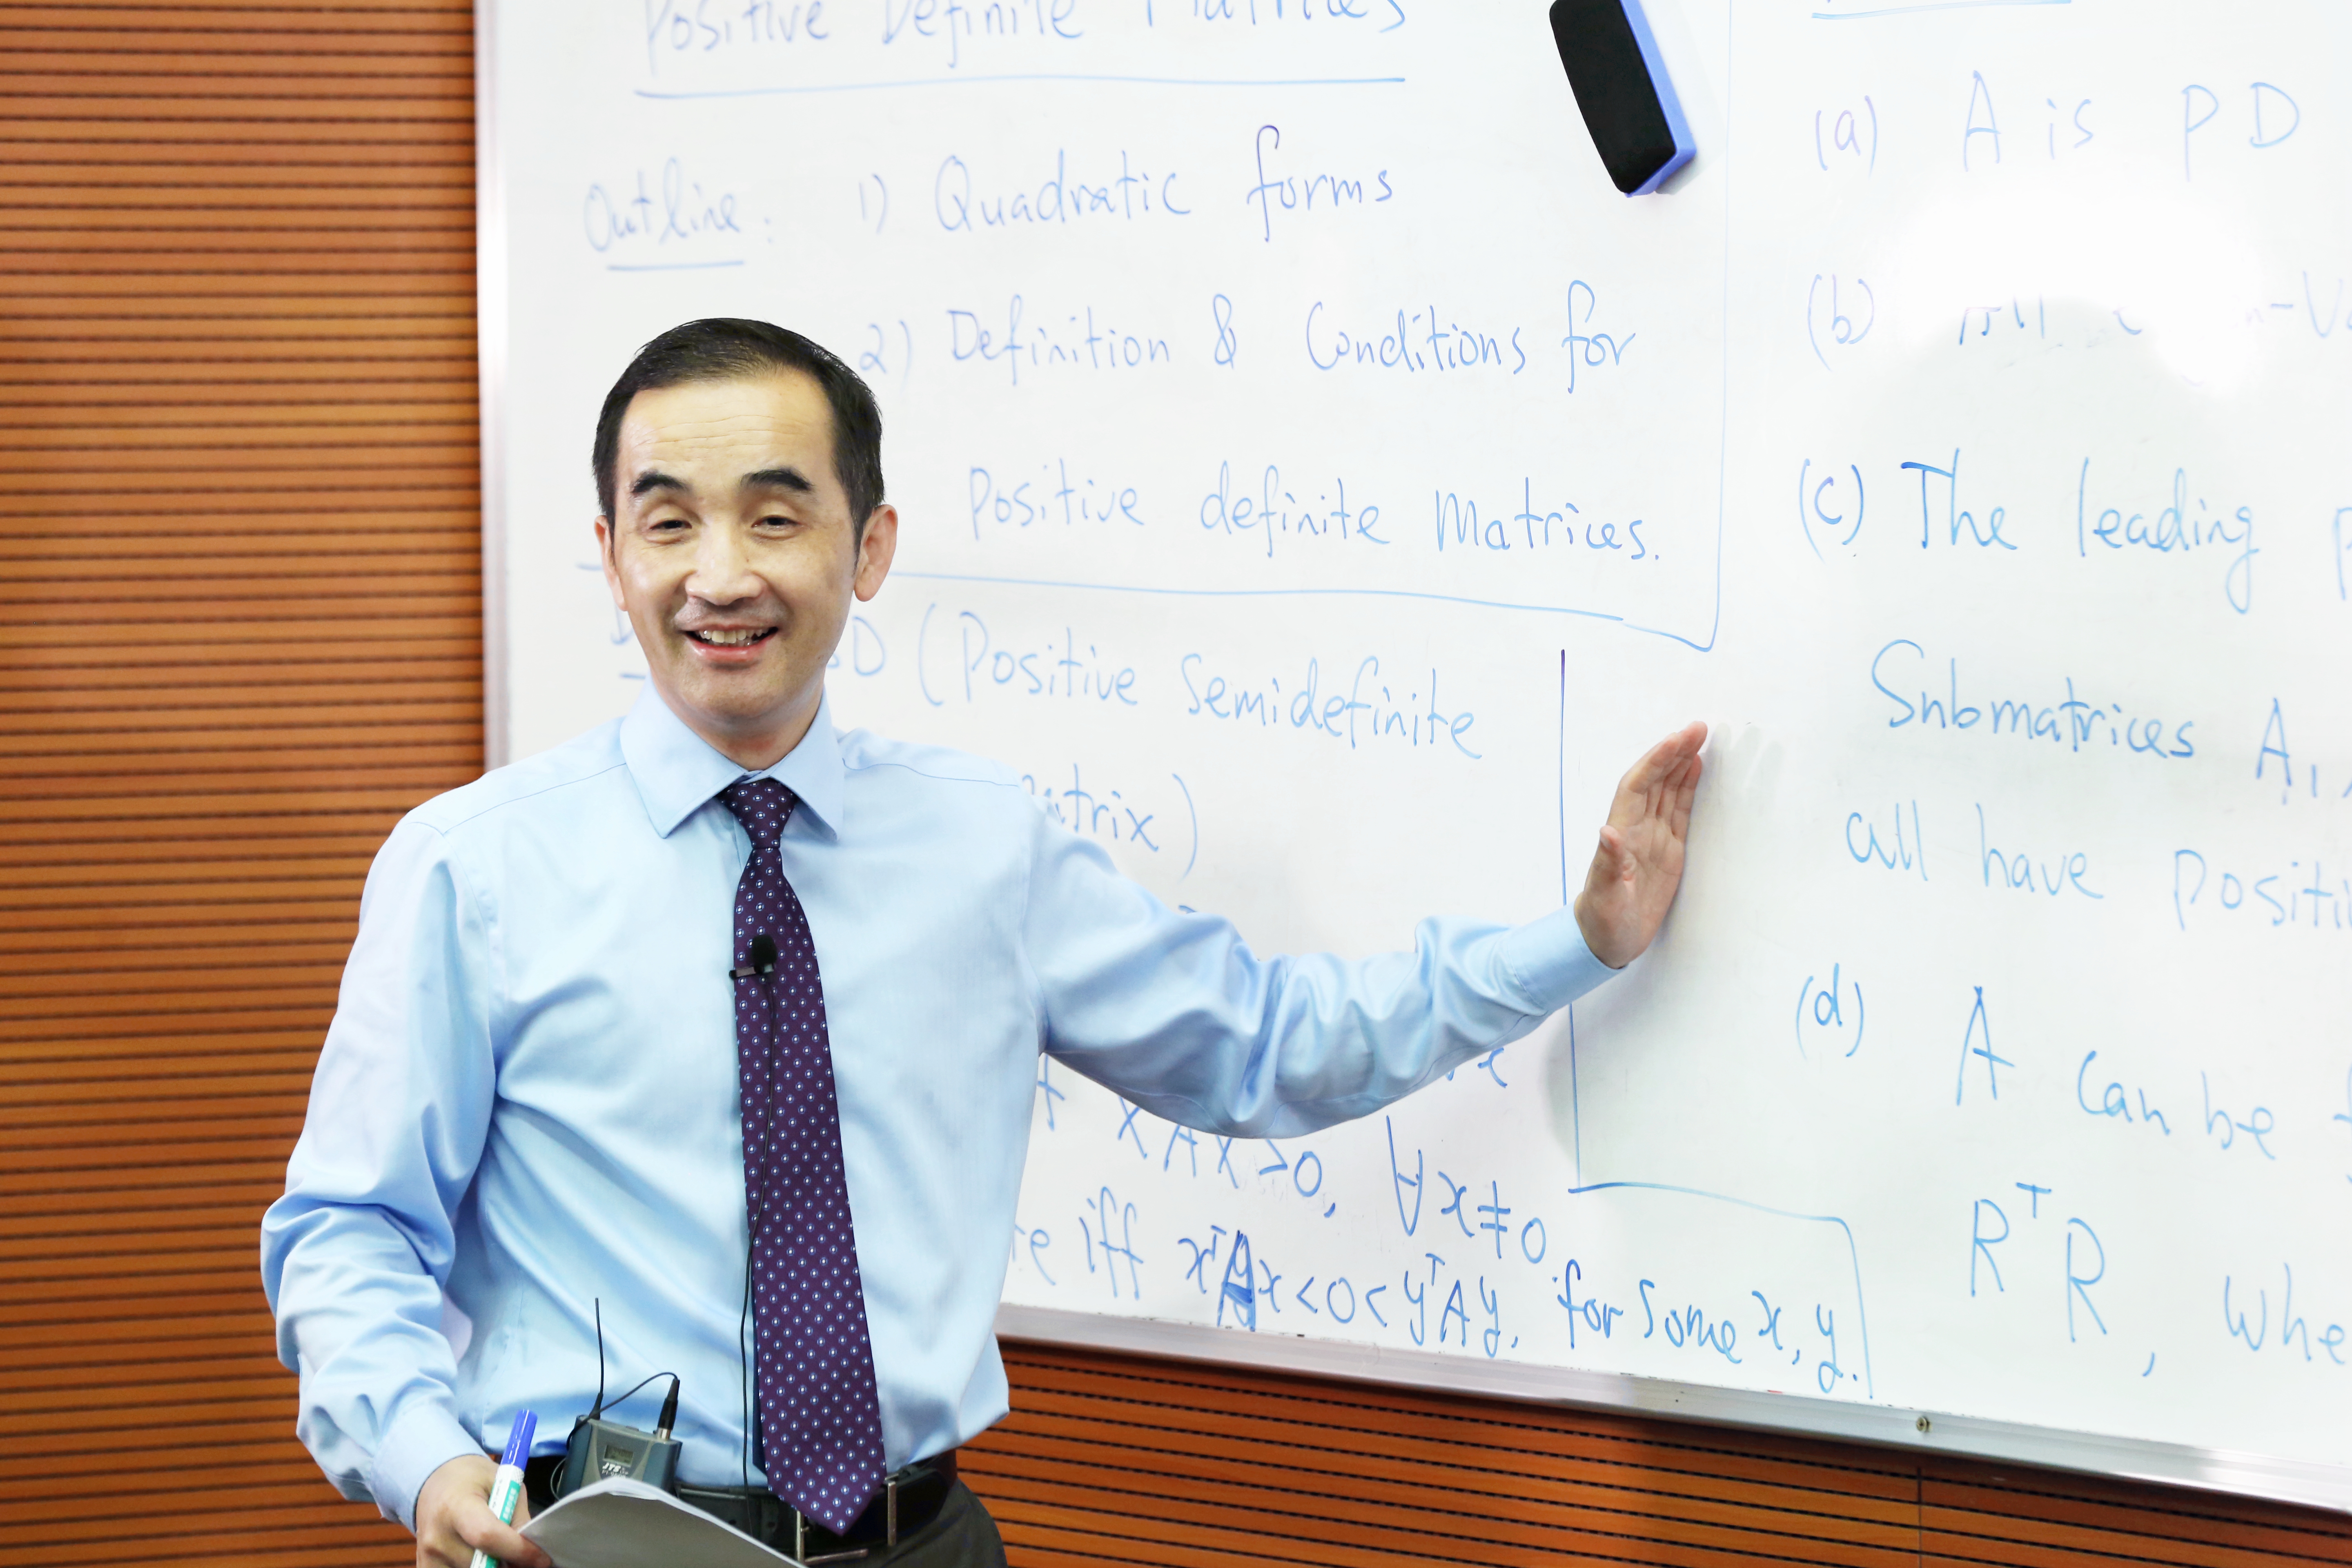 Positive Definite Matrices
Outline: 1) Quadratic forms
2) Definition & Conditions for
Positive definite Matrices.
(Positive Semidefinite
x A x > 0, ∀ x ≠ 0
iff xᵀAx < 0 < yᵀAy, for some x, y.
(a) A is PD
(b) All
(c) The leading
Submatrices A₁,
all have
(d) A can be
RᵀR,
JTS